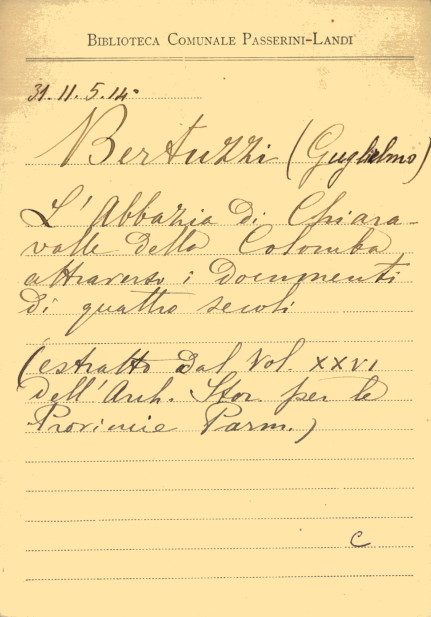 BIBLIOTECA COMUNALE PASSERINI-LANDI
31.11.5.14.
Bertuzzi (Guglielmo)
L'Abbazia di Chiara-
valle della Colomba
attraverso i documenti
di quattro secoli
(estratto dal Vol. XXVI
dell'Arch. Stor. per le
Provincie Parm.)
C